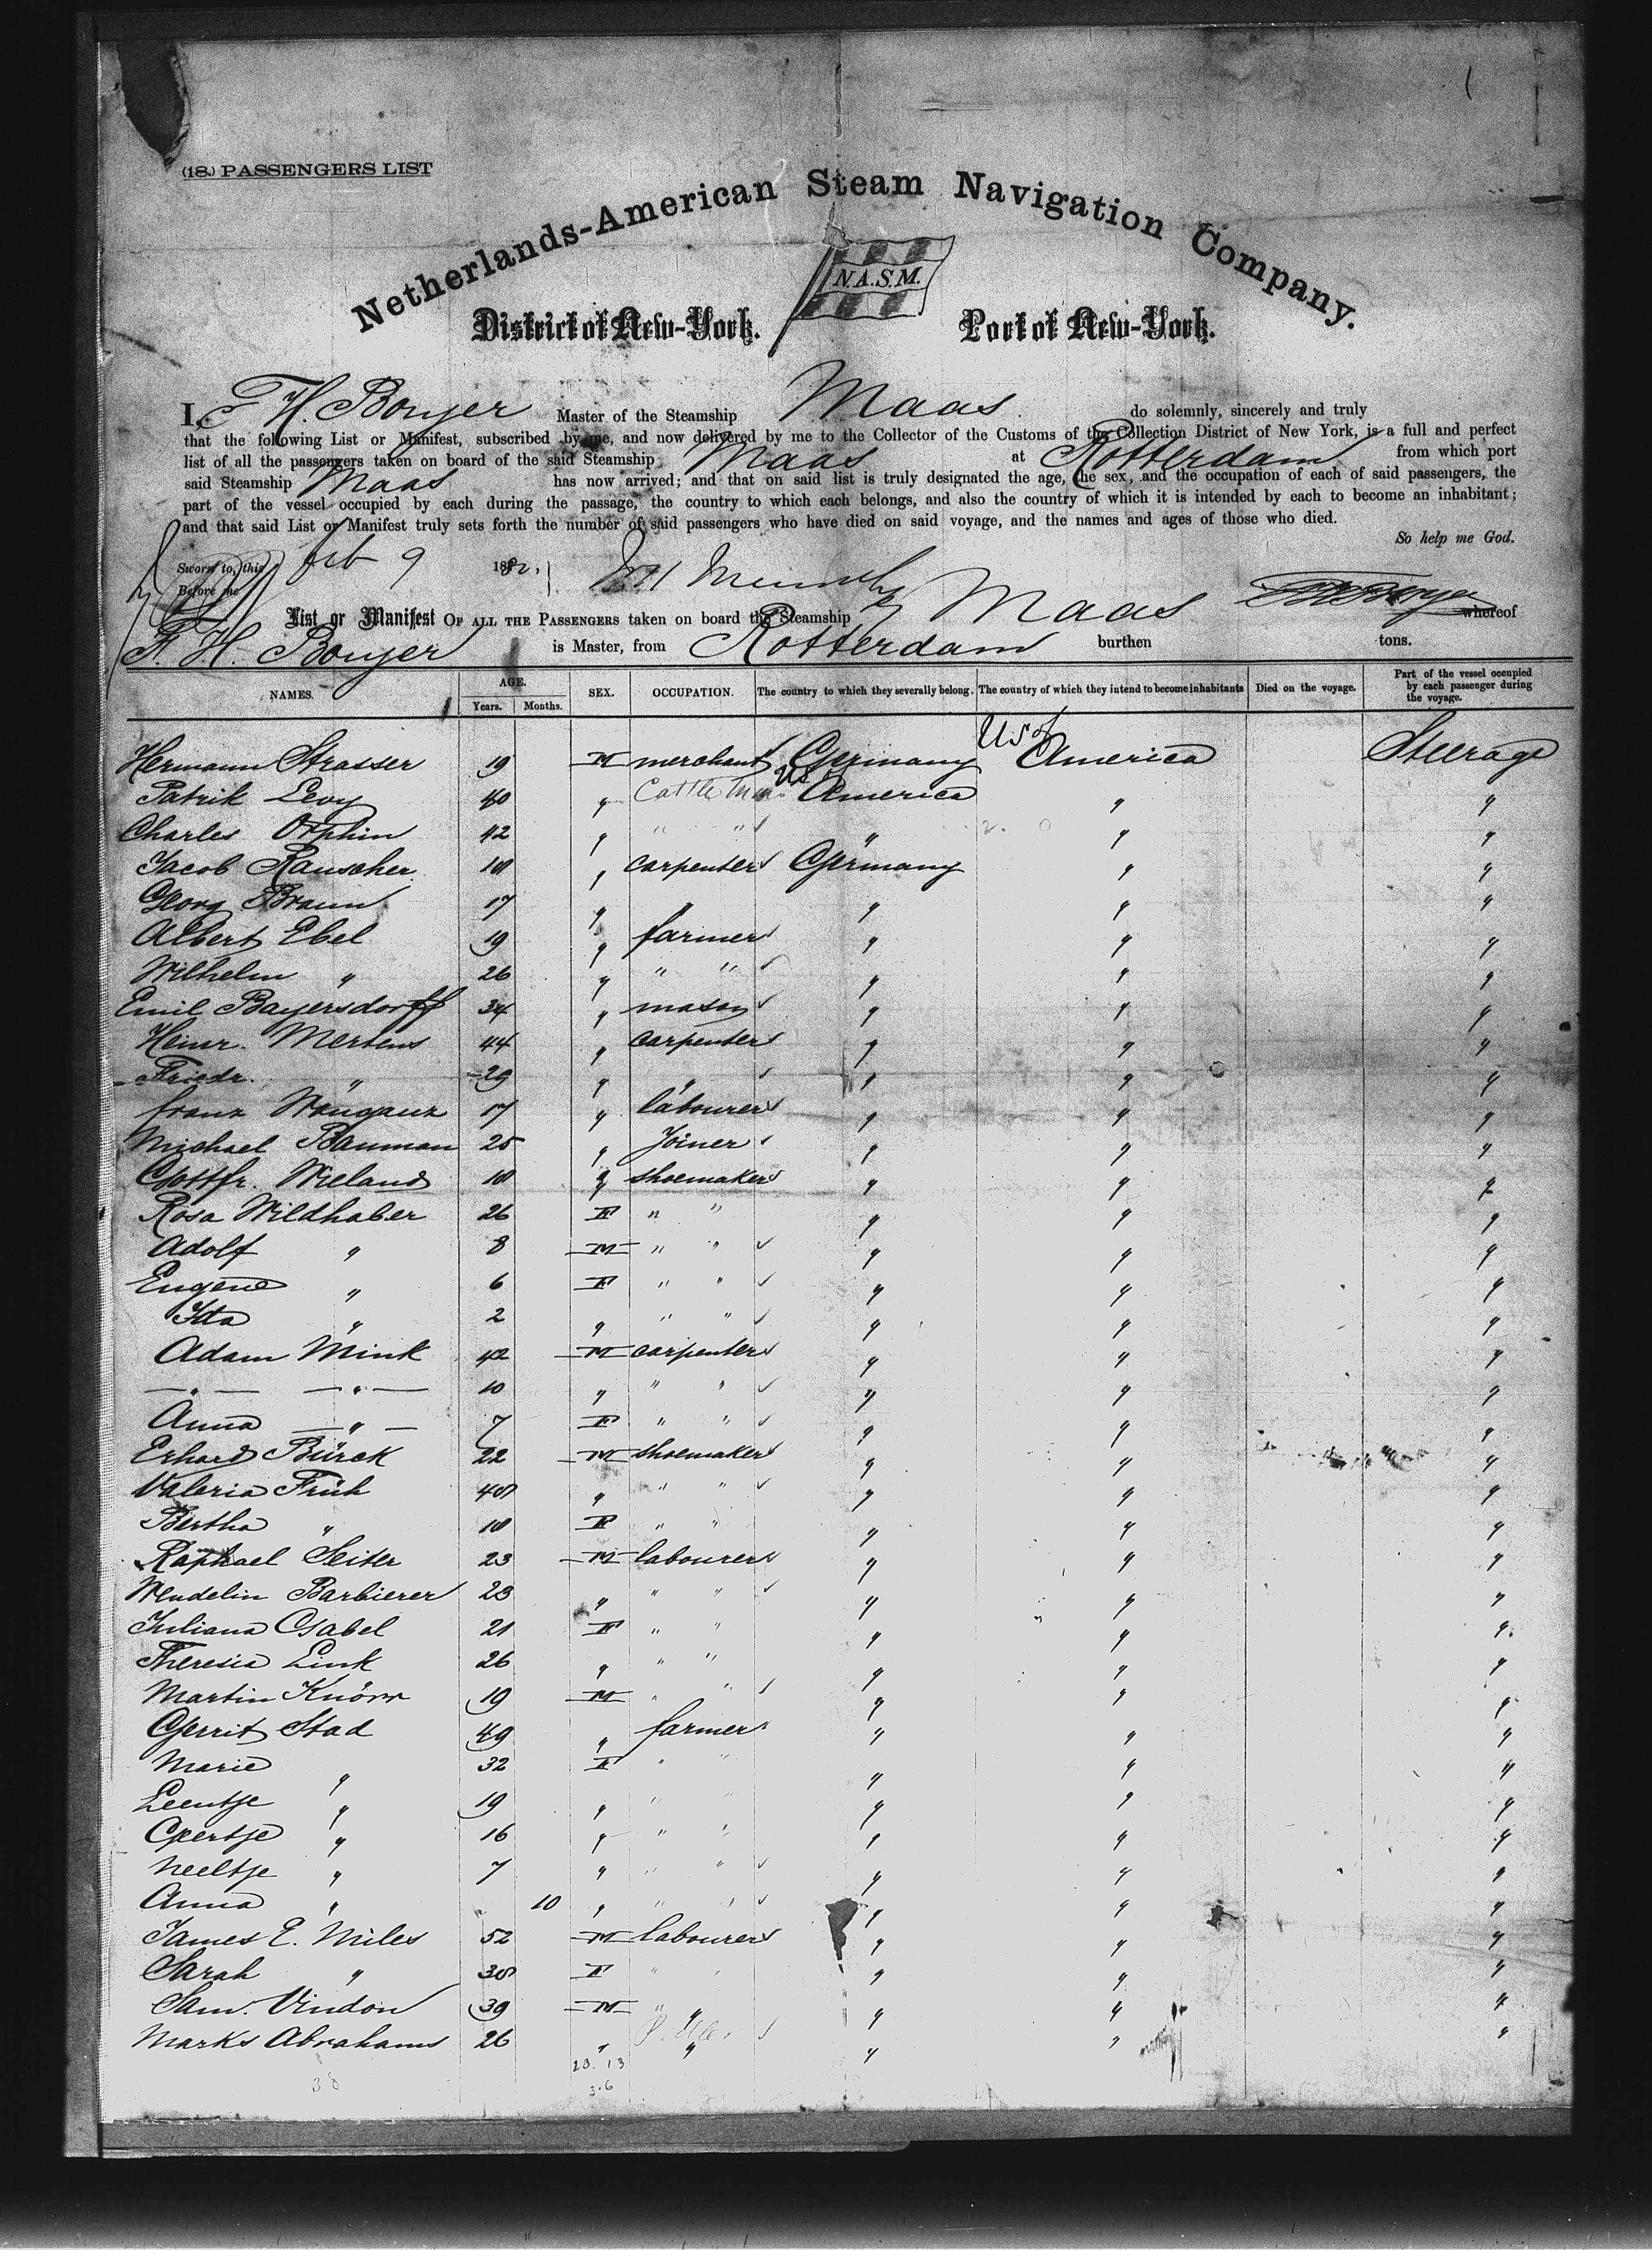 (18.) PASSENGERS LIST
Netherlands-American Steam Navigation Company.
N.A.S.M.
District of New-York. Port of New-York.
I, F. H. Bonjer Master of the Steamship Maas do solemnly, sincerely and truly
that the following List or Manifest, subscribed by me, and now delivered by me to the Collector of the Customs of the Collection District of New York, is a full and perfect
list of all the passengers taken on board of the said Steamship Maas at Rotterdam from which port
said Steamship Maas has now arrived; and that on said list is truly designated the age, the sex, and the occupation of each of said passengers, the
part of the vessel occupied by each during the passage, the country to which each belongs, and also the country of which it is intended by each to become an inhabitant;
and that said List or Manifest truly sets forth the number of said passengers who have died on said voyage, and the names and ages of those who died.
So help me God.
Sworn to, this Feb 9 1882,
Before me
List or Manifest OF ALL THE PASSENGERS taken on board the Steamship Maas whereof
F. H. Bonjer is Master, from Rotterdam burthen tons.
NAMES. AGE. Years. Months. SEX. OCCUPATION. The country to which they severally belong. The country of which they intend to become inhabitants Died on the voyage. Part of the vessel occupied by each passenger during the voyage.
Hermann Strasser 19 M merchant Germany US of America Steerage
Patrik Levy 40 " Cattle Men US America " "
Charles Orphin 42 " " " " " "
Jacob Rauscher 18 " carpenter Germany " "
Georg Braun 17 " " " " "
Albert Ebel 19 " farmer " " "
Wilhelm " 26 " " " " " "
Emil Bayersdorff 34 " mason " " "
Heinr. Mertens 44 " carpenter " " "
Friedr. " 29 " " " " "
Franz Wanganz 17 " labourer " " "
Michael Bauman 25 " Joiner " " "
Gottfr. Wieland 18 " shoemaker " " "
Rosa Wildhaber 26 F " " " " "
Adolf " 8 M " " " " "
Eugene " 6 F " " " " "
Ida " 2 " " " " " "
Adam Mink 42 M carpenter " " "
— " — — " — 10 " " " " " "
Anna — " — 7 F " " " " "
Erhard Bürck 22 M shoemaker " " "
Valeria Früh 48 " " " " " "
Bertha " 18 F " " " " "
Raphael Seiter 23 M labourer " " "
Wendelin Barbierer 23 " " " " " "
Juliana Gabel 21 F " " " " "
Theresia Link 26 " " " " " "
Martin Knörr 19 M " " " " "
Gerrit Stad 49 " farmer " " "
Marie " 32 F " " " " "
Leentje " 19 " " " " " "
Geertje " 16 " " " " " "
Neeltje " 7 " " " " " "
Anna " 10 " " " " " "
James E. Miles 52 M labourer " " "
Sarah " 38 F " " " " "
Sam. Vindon 39 M " " " " "
Marks Abrahams 26 " " " " "
38 23. 13
3.6